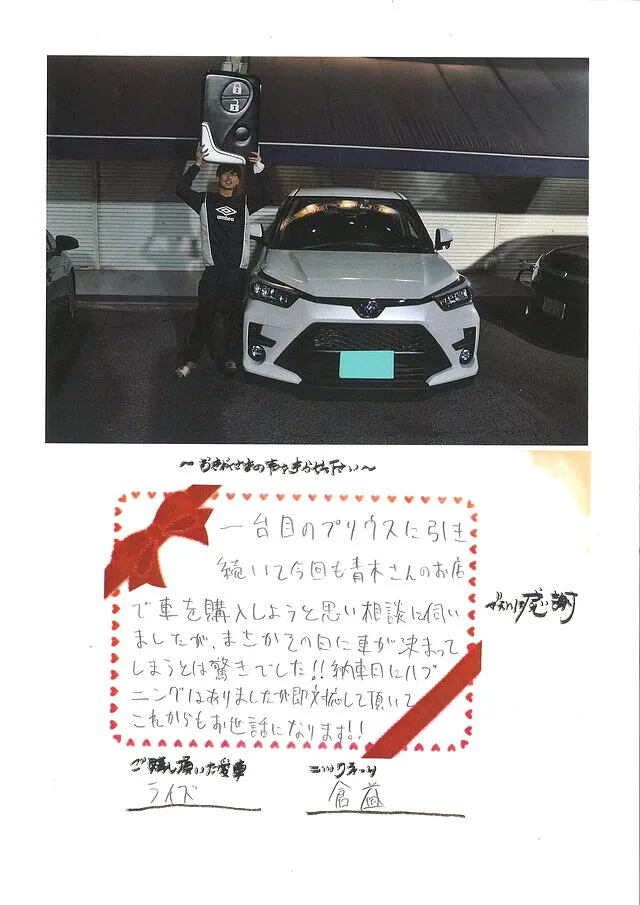 umbro
～お客さまの声をきかせて下さい～
一台目のプリウスに引き
続いて今回も青木さんのお店
で車を購入しようと思い相談に伺い
ましたが、まさかその日に車が決まって
しまうとは驚きでした!!納車日にハプ
ニングはありましたが即対応して頂いて
これからもお世話になります!!
感謝
ご購入頂いた愛車
ニックネーム
ライズ